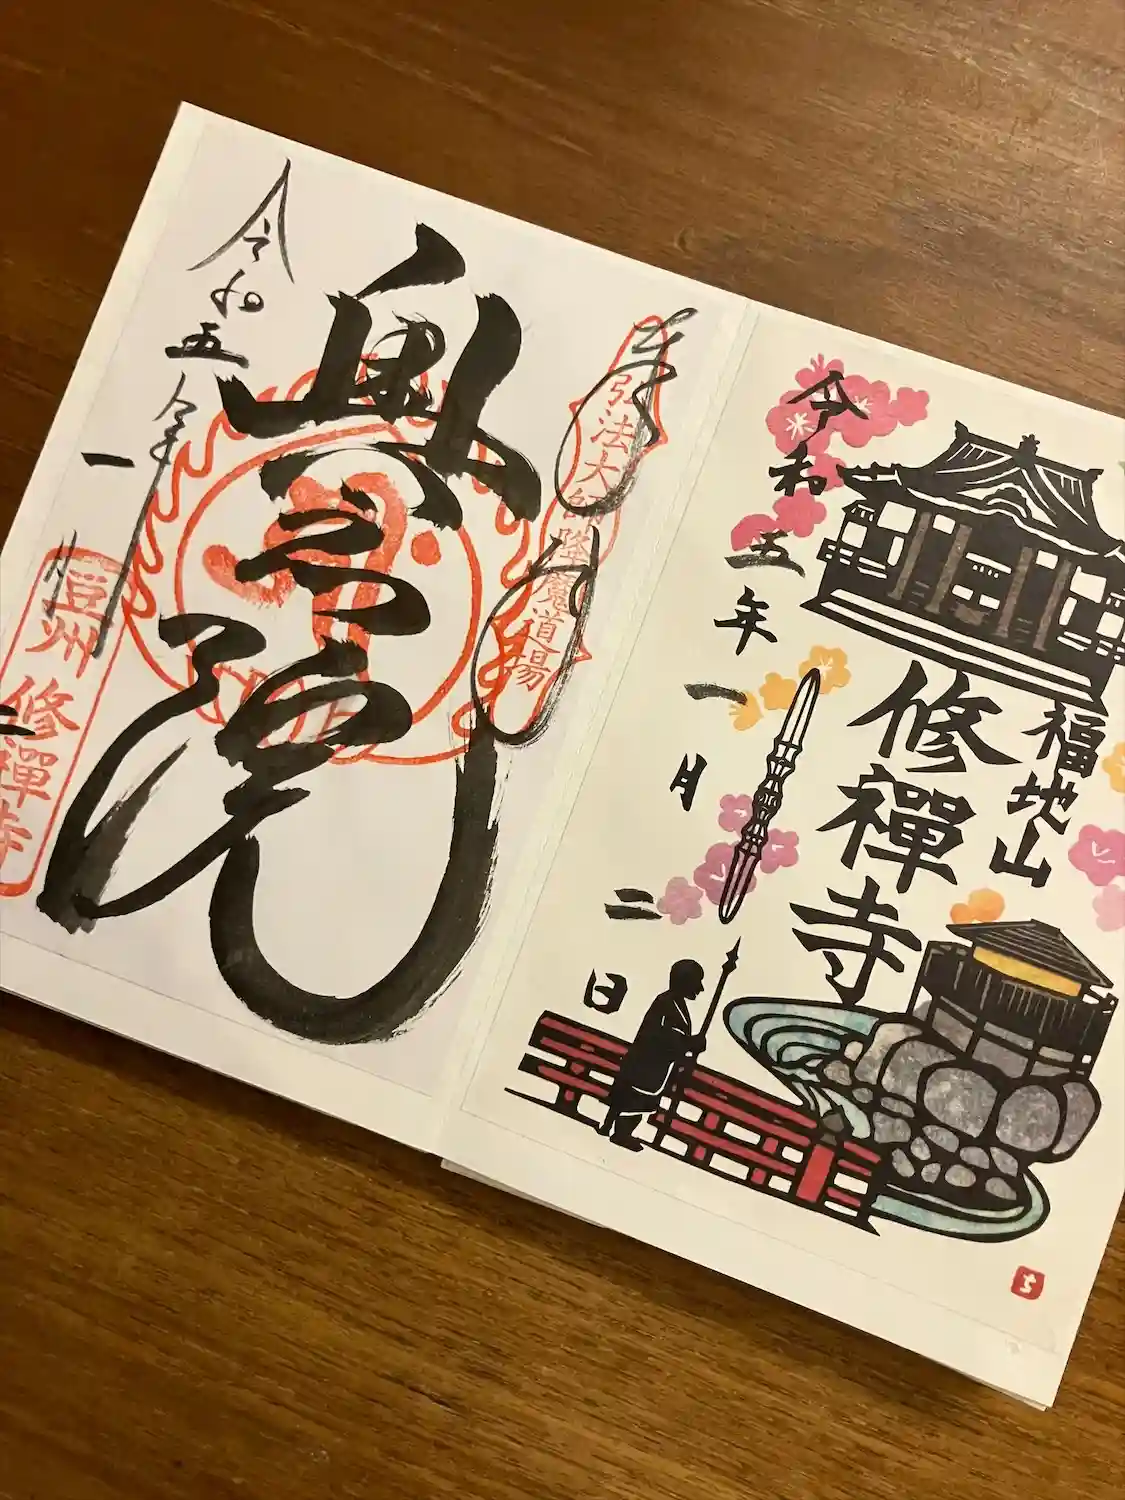 福地山
修禪寺
令和五年一月二日
ち
奉拝
弘法大師降魔道場
奥之院
令和五年
一月二
豆州 修禪寺